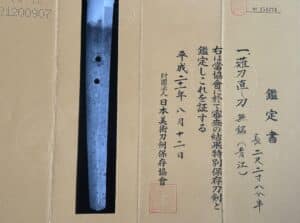 鑑定書
一、薙刀直シ刀 無銘(青江)
長 二尺二寸八分
右は當協會に於て審査の結果特別保存刀剣と
鑑定しこれを証する
平成二十二年八月十二日
財團法人 日本美術刀剣保存協會